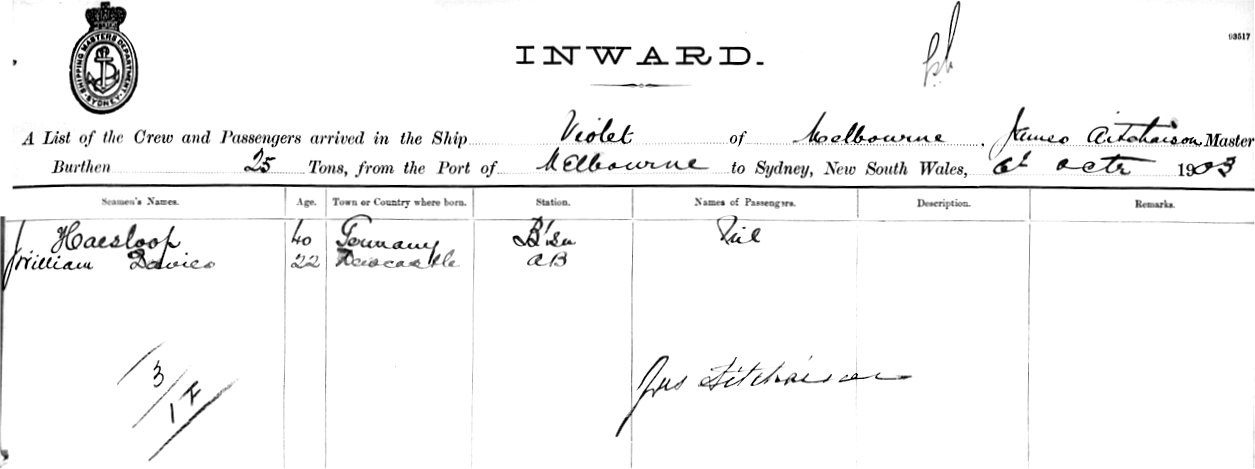 SHIPPING MASTERS DEPARTMENT SYDNEY
INWARD.
93517
A List of the Crew and Passengers arrived in the Ship Violet of Melbourne, James Aitchaison Master
Burthen 25 Tons, from the Port of Melbourne to Sydney, New South Wales, 6th Octr 1903
Seamen's Names. Age. Town or Country where born. Station. Names of Passengers. Description. Remarks.
J Haesloop 40 Germany B'sn Nil
William Davies 22 Newcastle AB
3/1F
Jas Aitchaison